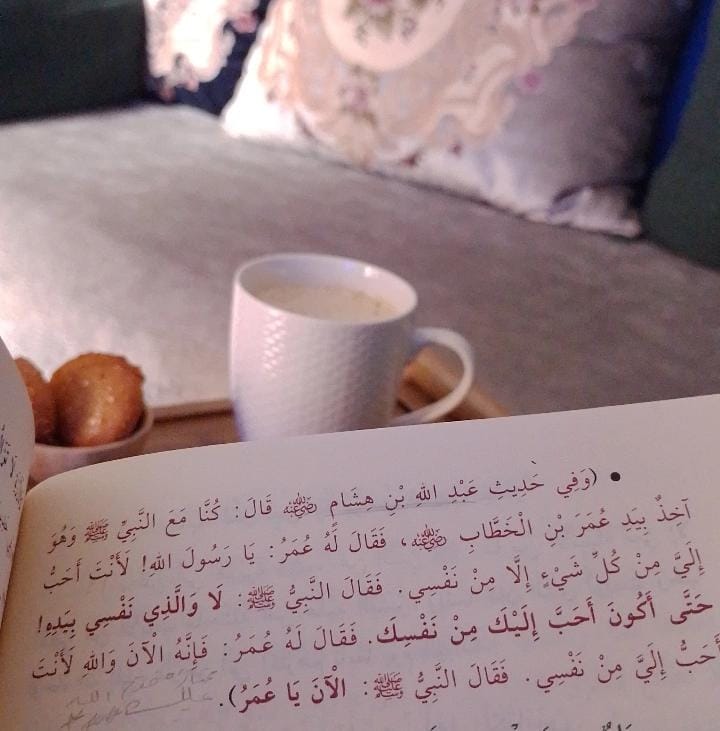 • (وَفِي حَدِيثِ عَبْدِ اللهِ بْنِ هِشَامٍ ﵁ قَالَ: كُنَّا مَعَ النَّبِيِّ ﷺ وَهُوَ
آخِذٌ بِيَدِ عُمَرَ بْنِ الْخَطَّابِ ﵁، فَقَالَ لَهُ عُمَرُ: يَا رَسُولَ اللهِ! لَأَنْتَ أَحَبُّ
إِلَيَّ مِنْ كُلِّ شَيْءٍ إِلَّا مِنْ نَفْسِي. فَقَالَ النَّبِيُّ ﷺ: لَا وَالَّذِي نَفْسِي بِيَدِهِ!
حَتَّى أَكُونَ أَحَبَّ إِلَيْكَ مِنْ نَفْسِكَ. فَقَالَ لَهُ عُمَرُ: فَإِنَّهُ الْآنَ وَاللهِ لَأَنْتَ
أَحَبُّ إِلَيَّ مِنْ نَفْسِي. فَقَالَ النَّبِيُّ ﷺ: الْآنَ يَا عُمَرُ).